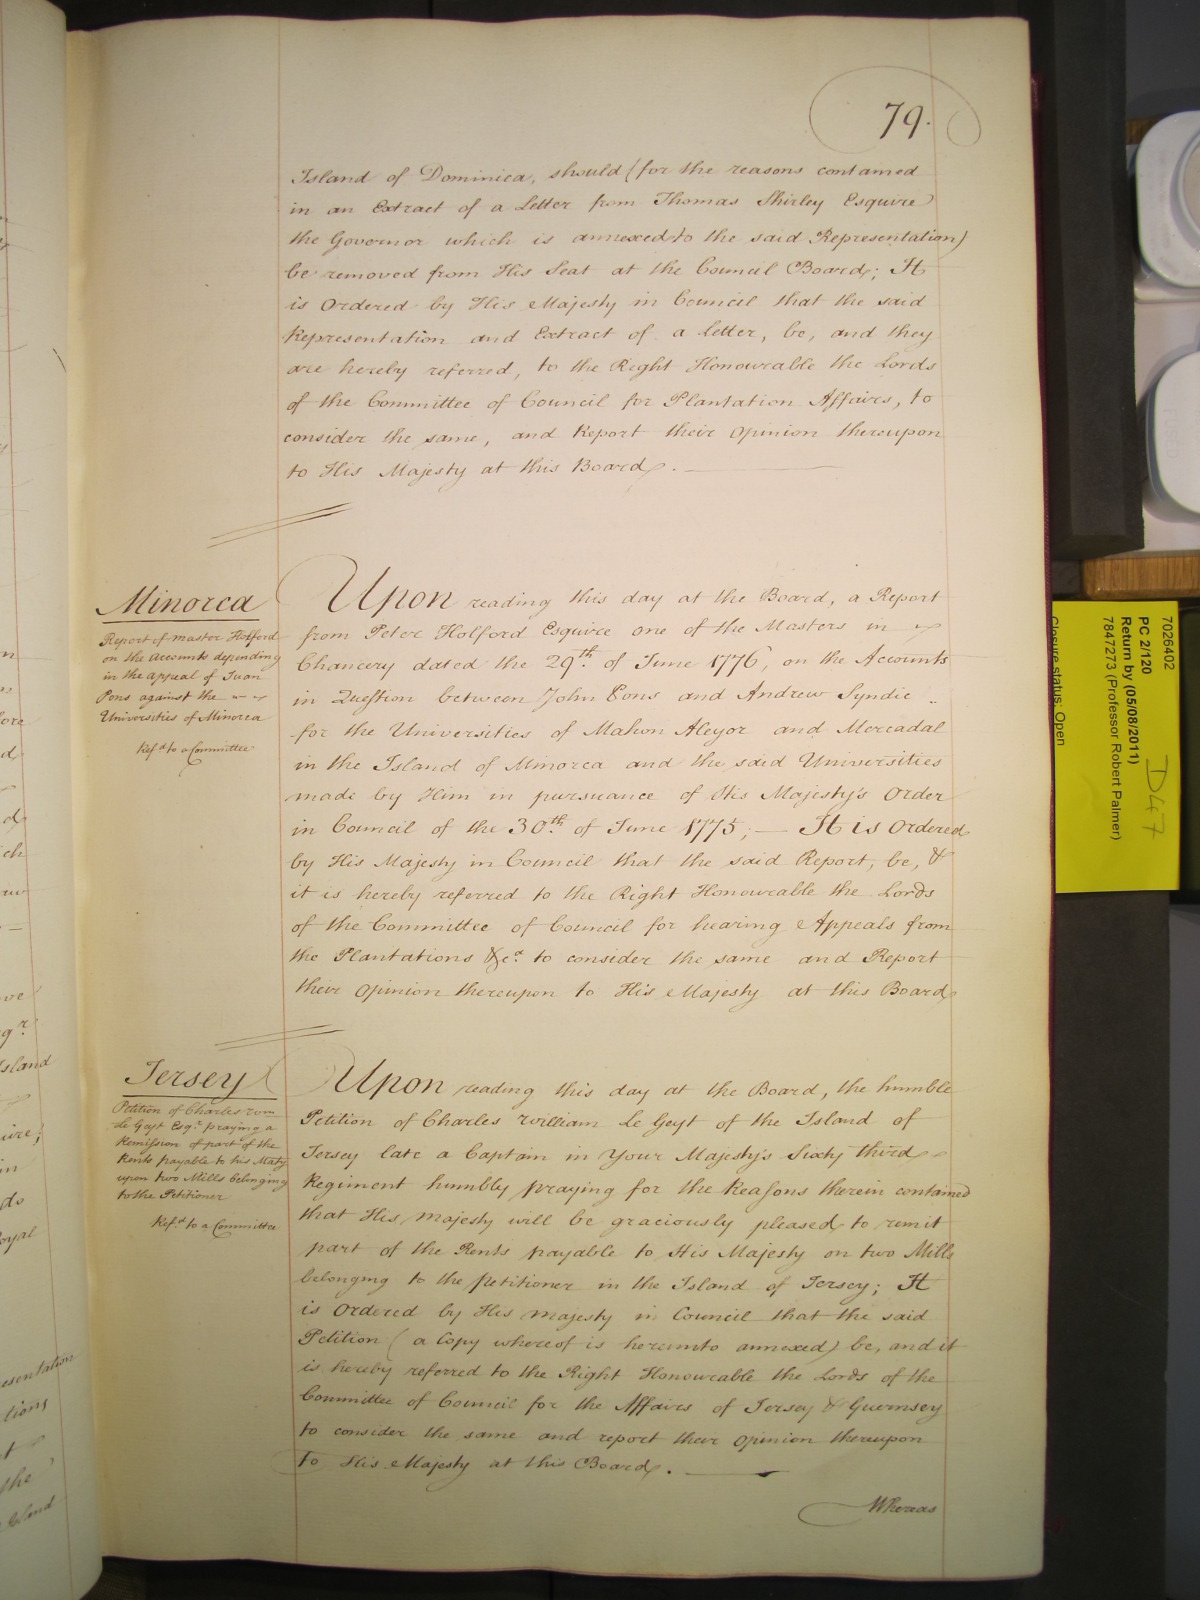 79.
Island of Dominica, should (for the reasons contained
in an Extract of a Letter from Thomas Shirley Esquire
the Governor which is annexed to the said Representation)
be removed from His Seat at the Council Board; It
is Ordered by His Majesty in Council that the said
Representation and Extract of a letter, be, and they
are hereby referred, to the Right Honourable the Lords
of the Committee of Council for Plantation Affairs, to
consider the same, and Report their Opinion thereupon
to His Majesty at this Board.
Minorca
Report of Master Holford
on the Accounts depending
in the appeal of Juan
Pons against the
Universities of Minorca
Ref.d to a Committee
Upon reading this day at the Board, a Report
from Peter Holford Esquire one of the Masters in
Chancery dated the 29th. of June 1776, on the Accounts
in Question between John Pons and Andrew Syndic
for the Universities of Mahon Aleyor and Mercadal
in the Island of Minorca and the said Universities
made by Him in pursuance of His Majesty's Order
in Council of the 30th. of June 1775; — It is Ordered
by His Majesty in Council that the said Report, be, &
it is hereby referred to the Right Honourable the Lords
of the Committee of Council for hearing Appeals from
the Plantations &c.a to consider the same and Report
their Opinion thereupon to His Majesty at this Board
Jersey
Petition of Charles Wm
Le Geyt Esqr. praying a
Remission of part of the
Rents payable to his Maty
upon two Mills belonging
to the Petitioner
Ref.d to a Committee
Upon reading this day at the Board, the humble
Petition of Charles William Le Geyt of the Island of
Jersey late a Captain in Your Majesty's Sixty third
Regiment humbly praying for the Reasons therein contained
that His Majesty will be graciously pleased to remit
part of the Rents payable to His Majesty on two Mills
belonging to the Petitioner in the Island of Jersey; It
is Ordered by His Majesty in Council that the said
Petition (a Copy whereof is hereunto annexed) be, and it
is hereby referred to the Right Honourable the Lords of the
Committee of Council for the Affairs of Jersey & Guernsey
to consider the same and report their Opinion thereupon
to His Majesty at this Board.
Whereas
7026402
PC 2/120
Return by (05/08/2011)
7847273 (Professor Robert Palmer)
D47
Closure status: Open